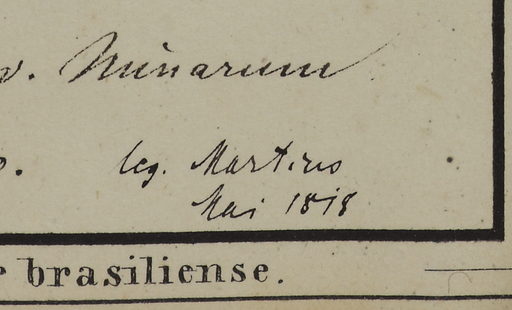 v. Minarum
leg. Martius
Mai 1818
r brasiliense.